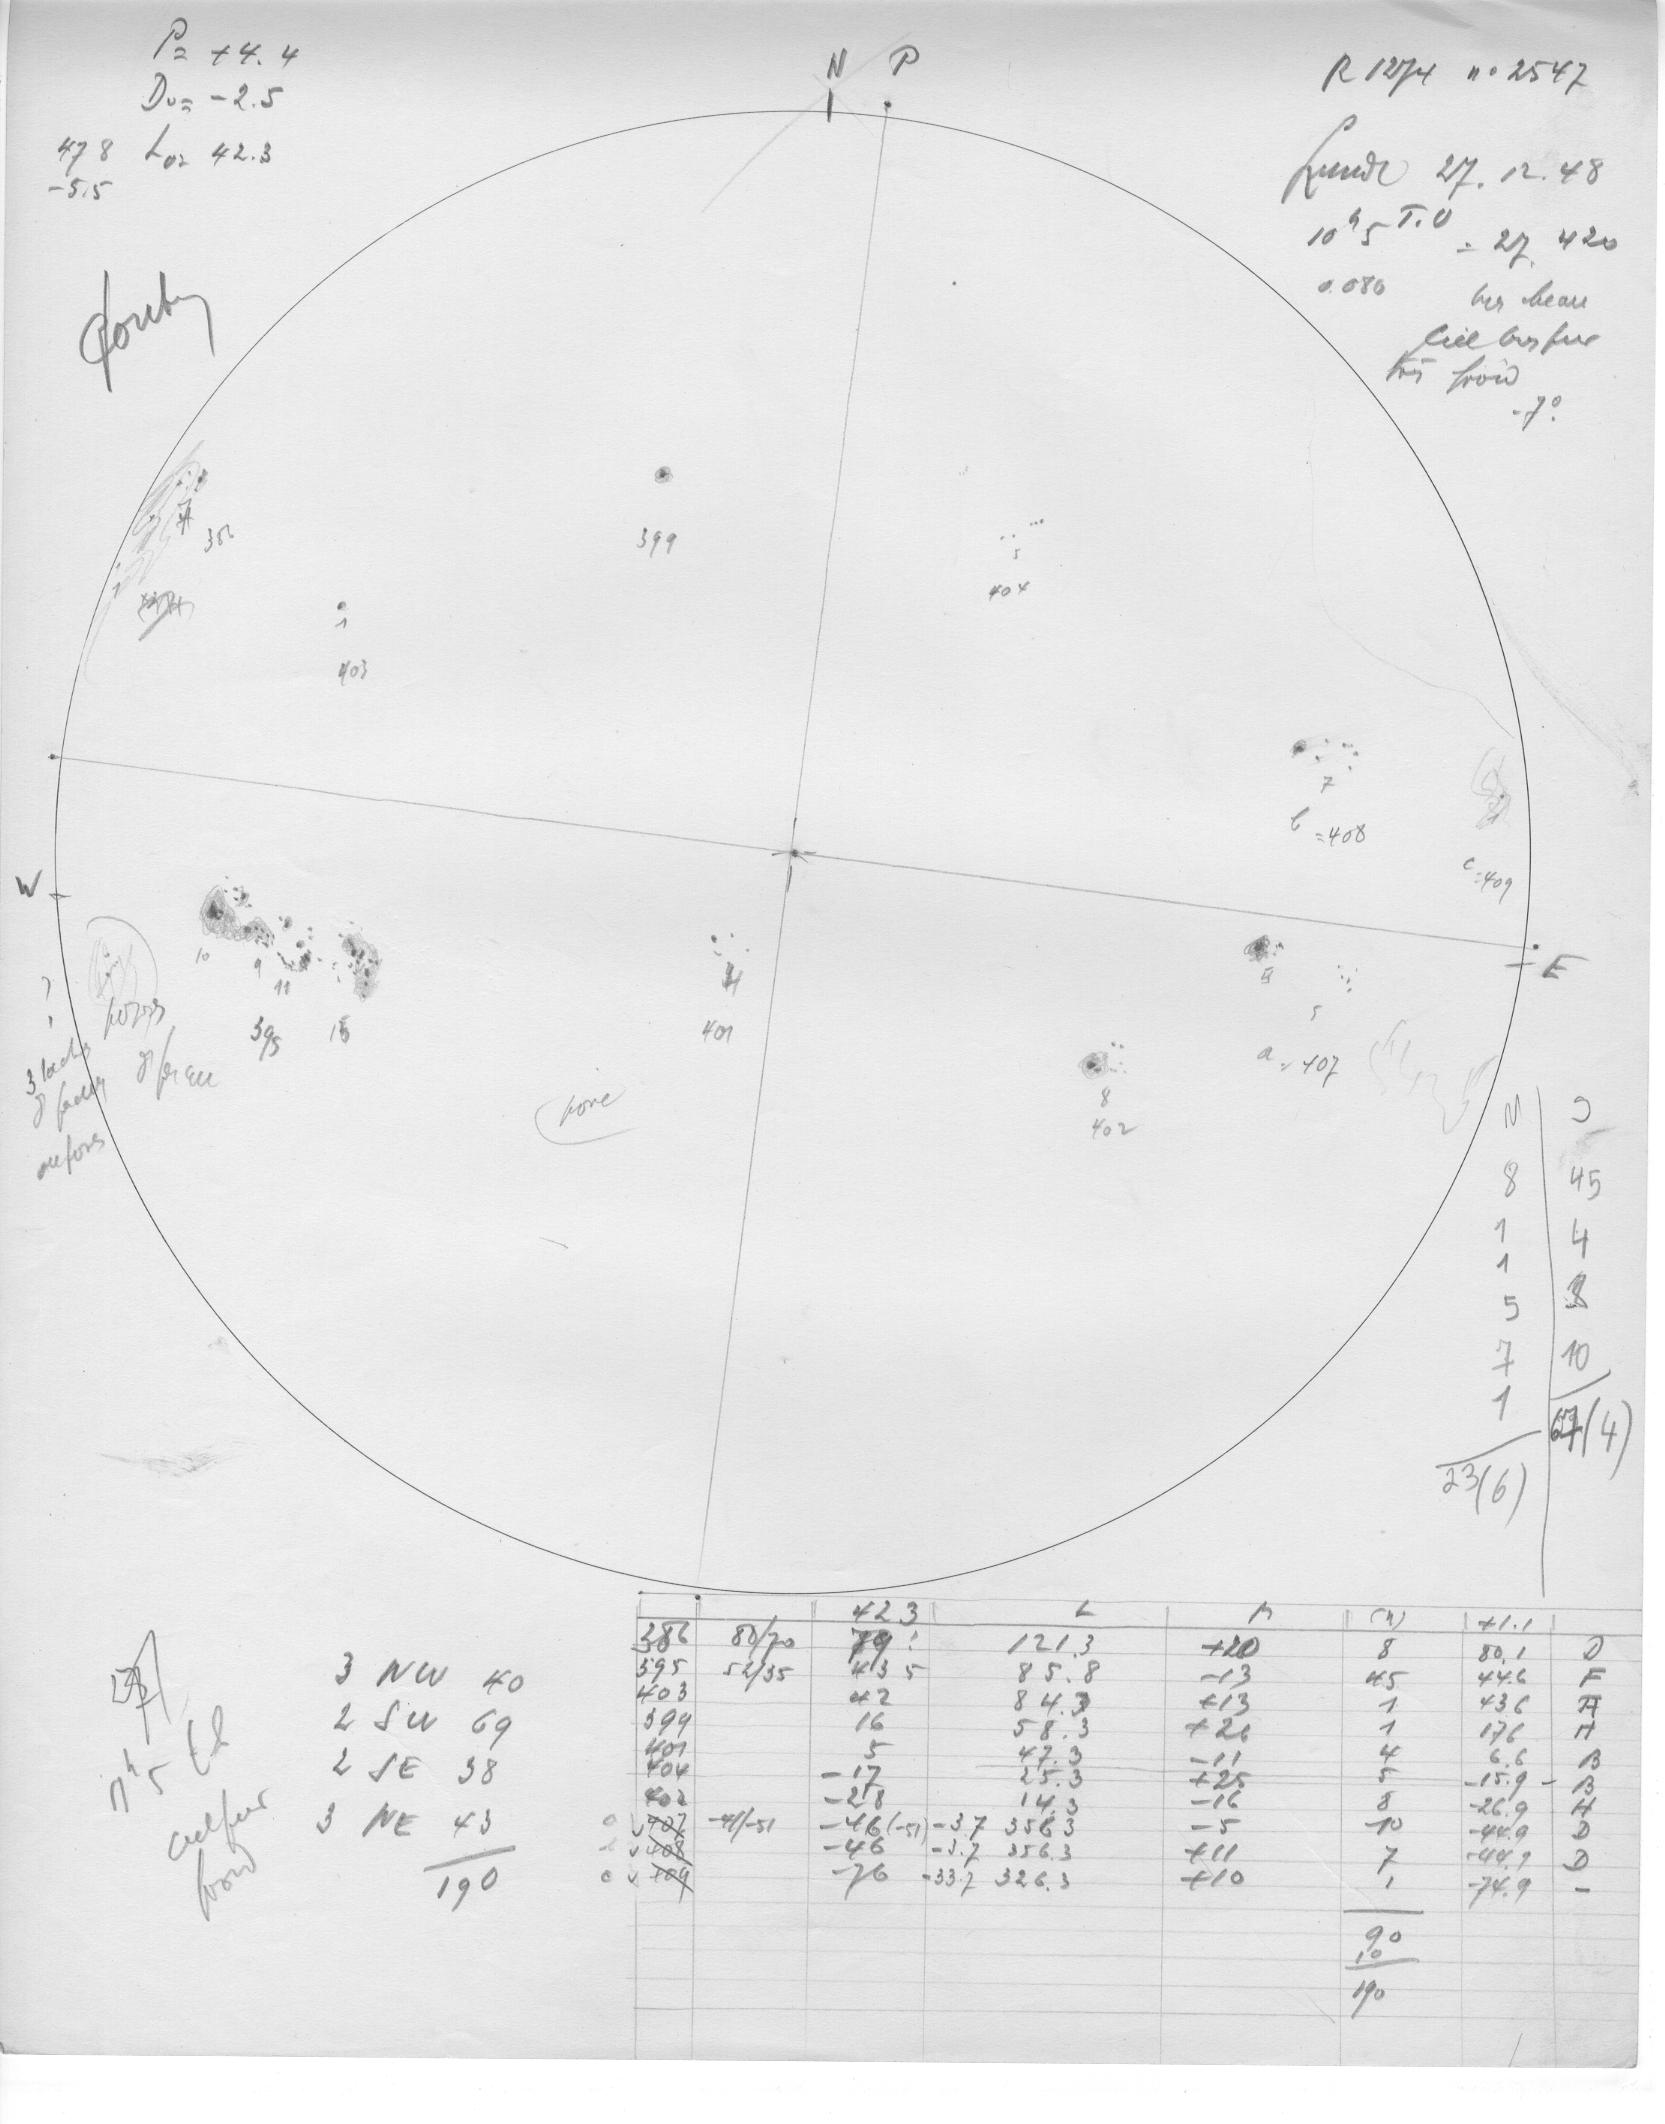 P= +4.4
D₀= -2.5
47 8 L₀= 42.3
-5.5
N P
R 1274 n° 2547
Lundi 27. 12. 48
10ʰ5 T.U = 27. 420
0.080
très beau
Ciel très pur
très froid
-7°
386
399
5
404
1
403
7
b =408
c =409
W
E
10
9
11
395
15
4
401
8
5
a = 407
8
402
?
3 taches
pore
N S
8 45
1 4
1 8
5 10
7 67(4)
1
23(6)
3 NW 40
2 SW 69
2 SE 38
3 NE 43
190
froid
42.3 L (n) +1.1
386 80/70 79 121.3 +20 8 80.1 D
395 52/35 43 5 85.8 -13 45 44.6 F
403 42 84.3 +13 1 43.6 A
399 16 58.3 +26 1 17.6 H
401 5 47.3 -11 4 6.6 B
404 -17 25.3 +25 5 -15.9 - B
402 -28 14.3 -16 8 -26.9 H
407 -41/-51 -46(-51) -3.7 356.3 -5 10 -44.9 D
408 -46 -3.7 356.3 +11 7 -44.9 D
409 -76 -33.7 326.3 +10 1 -74.9 -
90
10
190